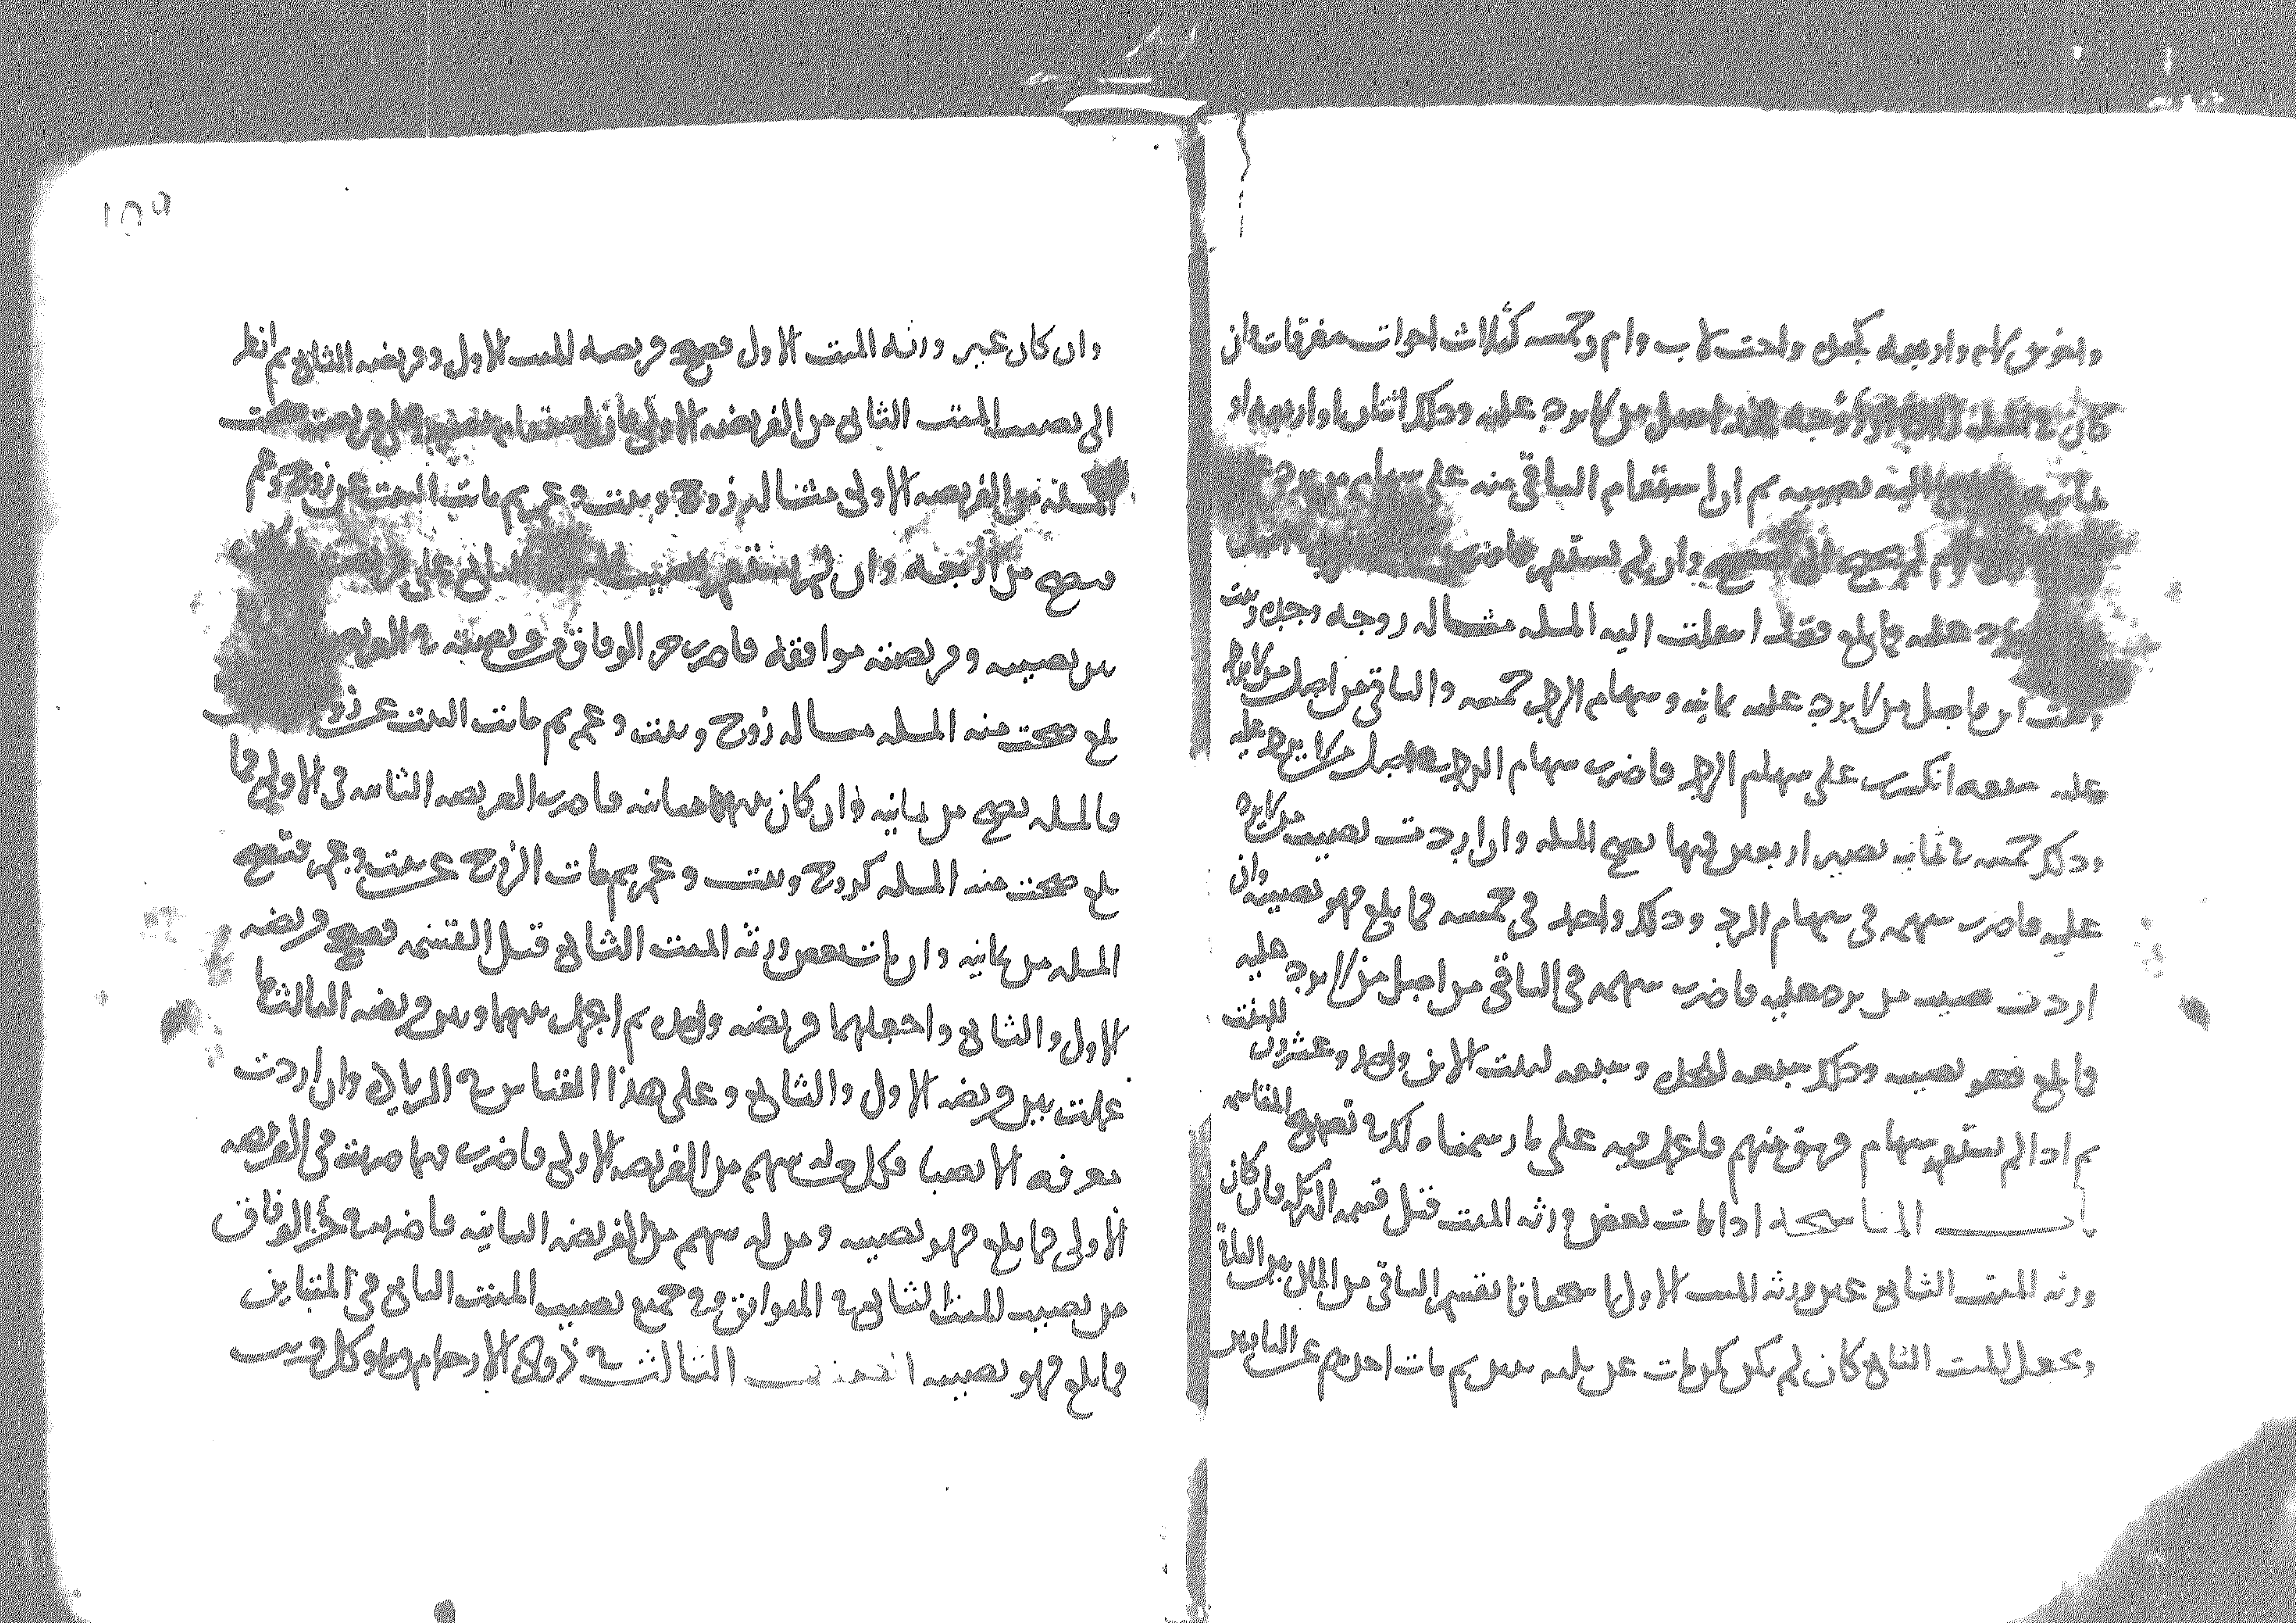 واخوين لام واربعه كجده واخت لاب وام وخمسه كثلاث اخوات مفرقات وان
كان في المسله احد الزوجين فخذ اصل من لا يرد عليه وذلك اثنان او اربعه او
ثمانيه نصيبه ثم ان استقام الباقي منه على سهام من يرد
لم يصح الى وان لم يستقم فاضرب
عليه فما بلغ فقد انتقلت اليه المسله مثاله زوجه وجده وبنت
من لا يرد عليه ثمانيه وسهام الرد خمسه والباقي من اصل من لا يرد
عليه سبعه انكسرت على سهام الرد فاضرب سهام الرد في اصل من لا يرد عليه
وذلك خمسه في ثمانيه تصير اربعين فمنها تصح المسله وان اردت نصيب من لا يرد
عليه فاضرب سهمه في سهام الرد وذلك واحد في خمسه فما بلغ فهو نصيبه وان
اردت نصيب من يرد عليه فاضرب سهمه في الباقي من اصل من لا يرد عليه
فما بلغ فهو نصيبه وذلك سبعه للجده وسبعه لبنت الابن واحد وعشرون للبنت
ثم اذا لم يستقم سهام فريق منهم فاعمل فيه على ما رسمناه لك في تصحيح المقاسمه
باب المناسخه اذا مات بعض ورثه الميت قبل قسمه التركه فان كان
ورثه الميت الثاني عين ورثه الميت الاول فاقسم الباقي من المال بين الباقين
وتجعل الميت الثاني كان لم يكن كمن مات عن ثلثه بنين ثم مات احدهم عن الباقين
١٥٩
وان كان غير ورثه الميت الاول فصحح فريضه الميت الاول وفريضه الثاني ثم انظر
الى نصيب الميت الثاني من الفريضه الاولى فان استقام نصيبه على فريضته صحت
المسله من الفريضه الاولى مثاله زوج وبنت وعم ثم ماتت البنت عن زوج وعم
فتصح من اربعه وان لم يستقم نصيب الثاني على
بين نصيبه وفريضته موافقه فاضرب جزء الوفاق من فريضته في الفريضه
بلغ صحت منه المسله مثاله زوج وبنت وعم ثم ماتت البنت عن زوج
فالمسله تصح من ثمانيه وان كان بينهما مباينه فاضرب الفريضه الثانيه في الاولى فما
بلغ صحت منه المسله كزوج وبنت وعم ثم مات الزوج عن بنت وعم فتصح
المسله من ثمانيه وان مات بعض ورثه الميت الثاني قبل القسمه فصحح فريضه
الاول والثاني واجعلهما فريضه واحده ثم اعمل بينهما وبين فريضه الثالث ما
عملت بين فريضه الاول والثاني وعلى هذا القياس في الرابع وان اردت
معرفه الانصبا فكل من له سهم من الفريضه الاولى فاضرب فيما ضربت في الفريضه
الاولى فما بلغ فهو نصيبه ومن له سهم من الفريضه الثانيه فاضربه في جزء الوفاق
من نصيب الميت الثاني في الموافق وفي جميع نصيب الميت الثاني في المتباين
فما بلغ فهو نصيبه الثالث في ذوي الارحام وهو كل قريب